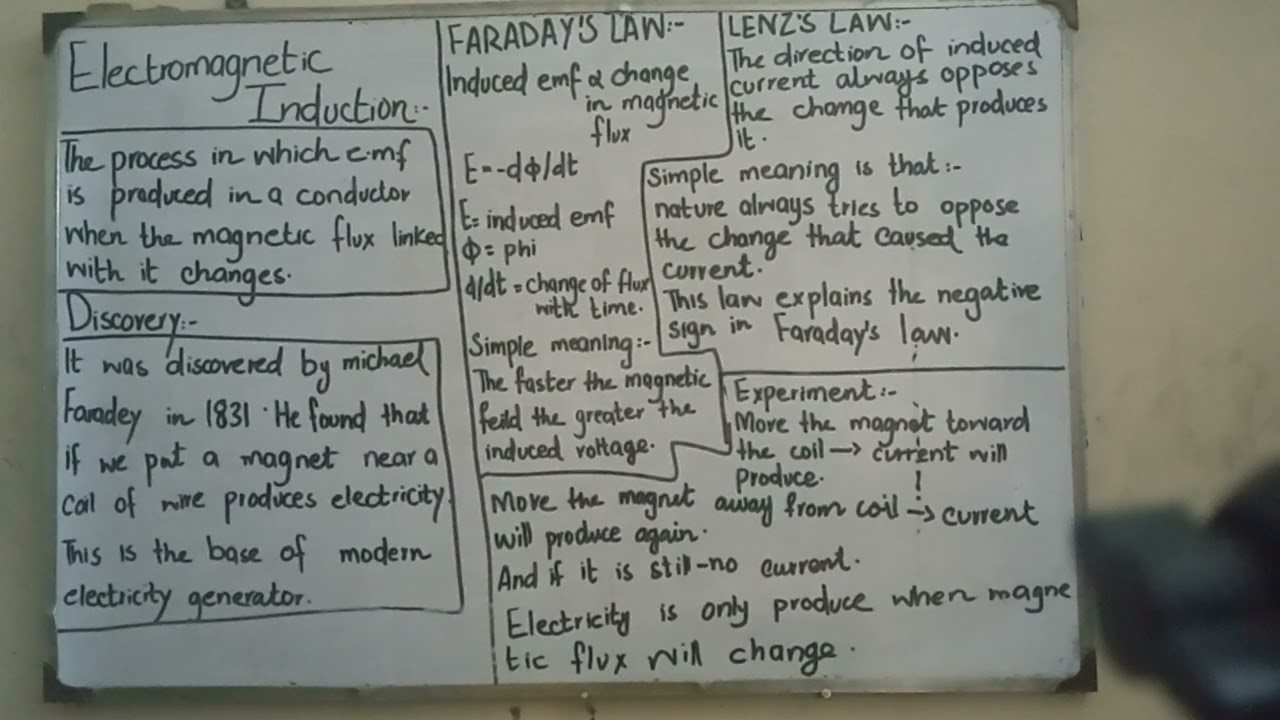 Electromagnetic
Induction:-
The process in which e.mf
is produced in a conductor
when the magnetic flux linked
with it changes.
Discovery:-
It was discovered by michael
Faradey in 1831. He found that
if we put a magnet near a
coil of wire produces electricity.
This is the base of modern
electricity generator.
FARADAY'S LAW:-
Induced emf α change
in magnetic
flux
E=-dϕ/dt
E= induced emf
ϕ= phi
d/dt = change of flux
with time.
Simple meaning:-
The faster the magnetic
feild the greater the
induced voltage.
LENZ'S LAW:-
The direction of induced
current always opposes
the change that produces
it.
Simple meaning is that:-
nature always tries to oppose
the change that caused the
current.
This law explains the negative
sign in Faraday's law.
Experiment:-
Move the magnet toward
the coil → current will
produce.
Move the magnet away from coil → current
will produce again.
And if it is still-no current.
Electricity is only produce when magne
tic flux will change.